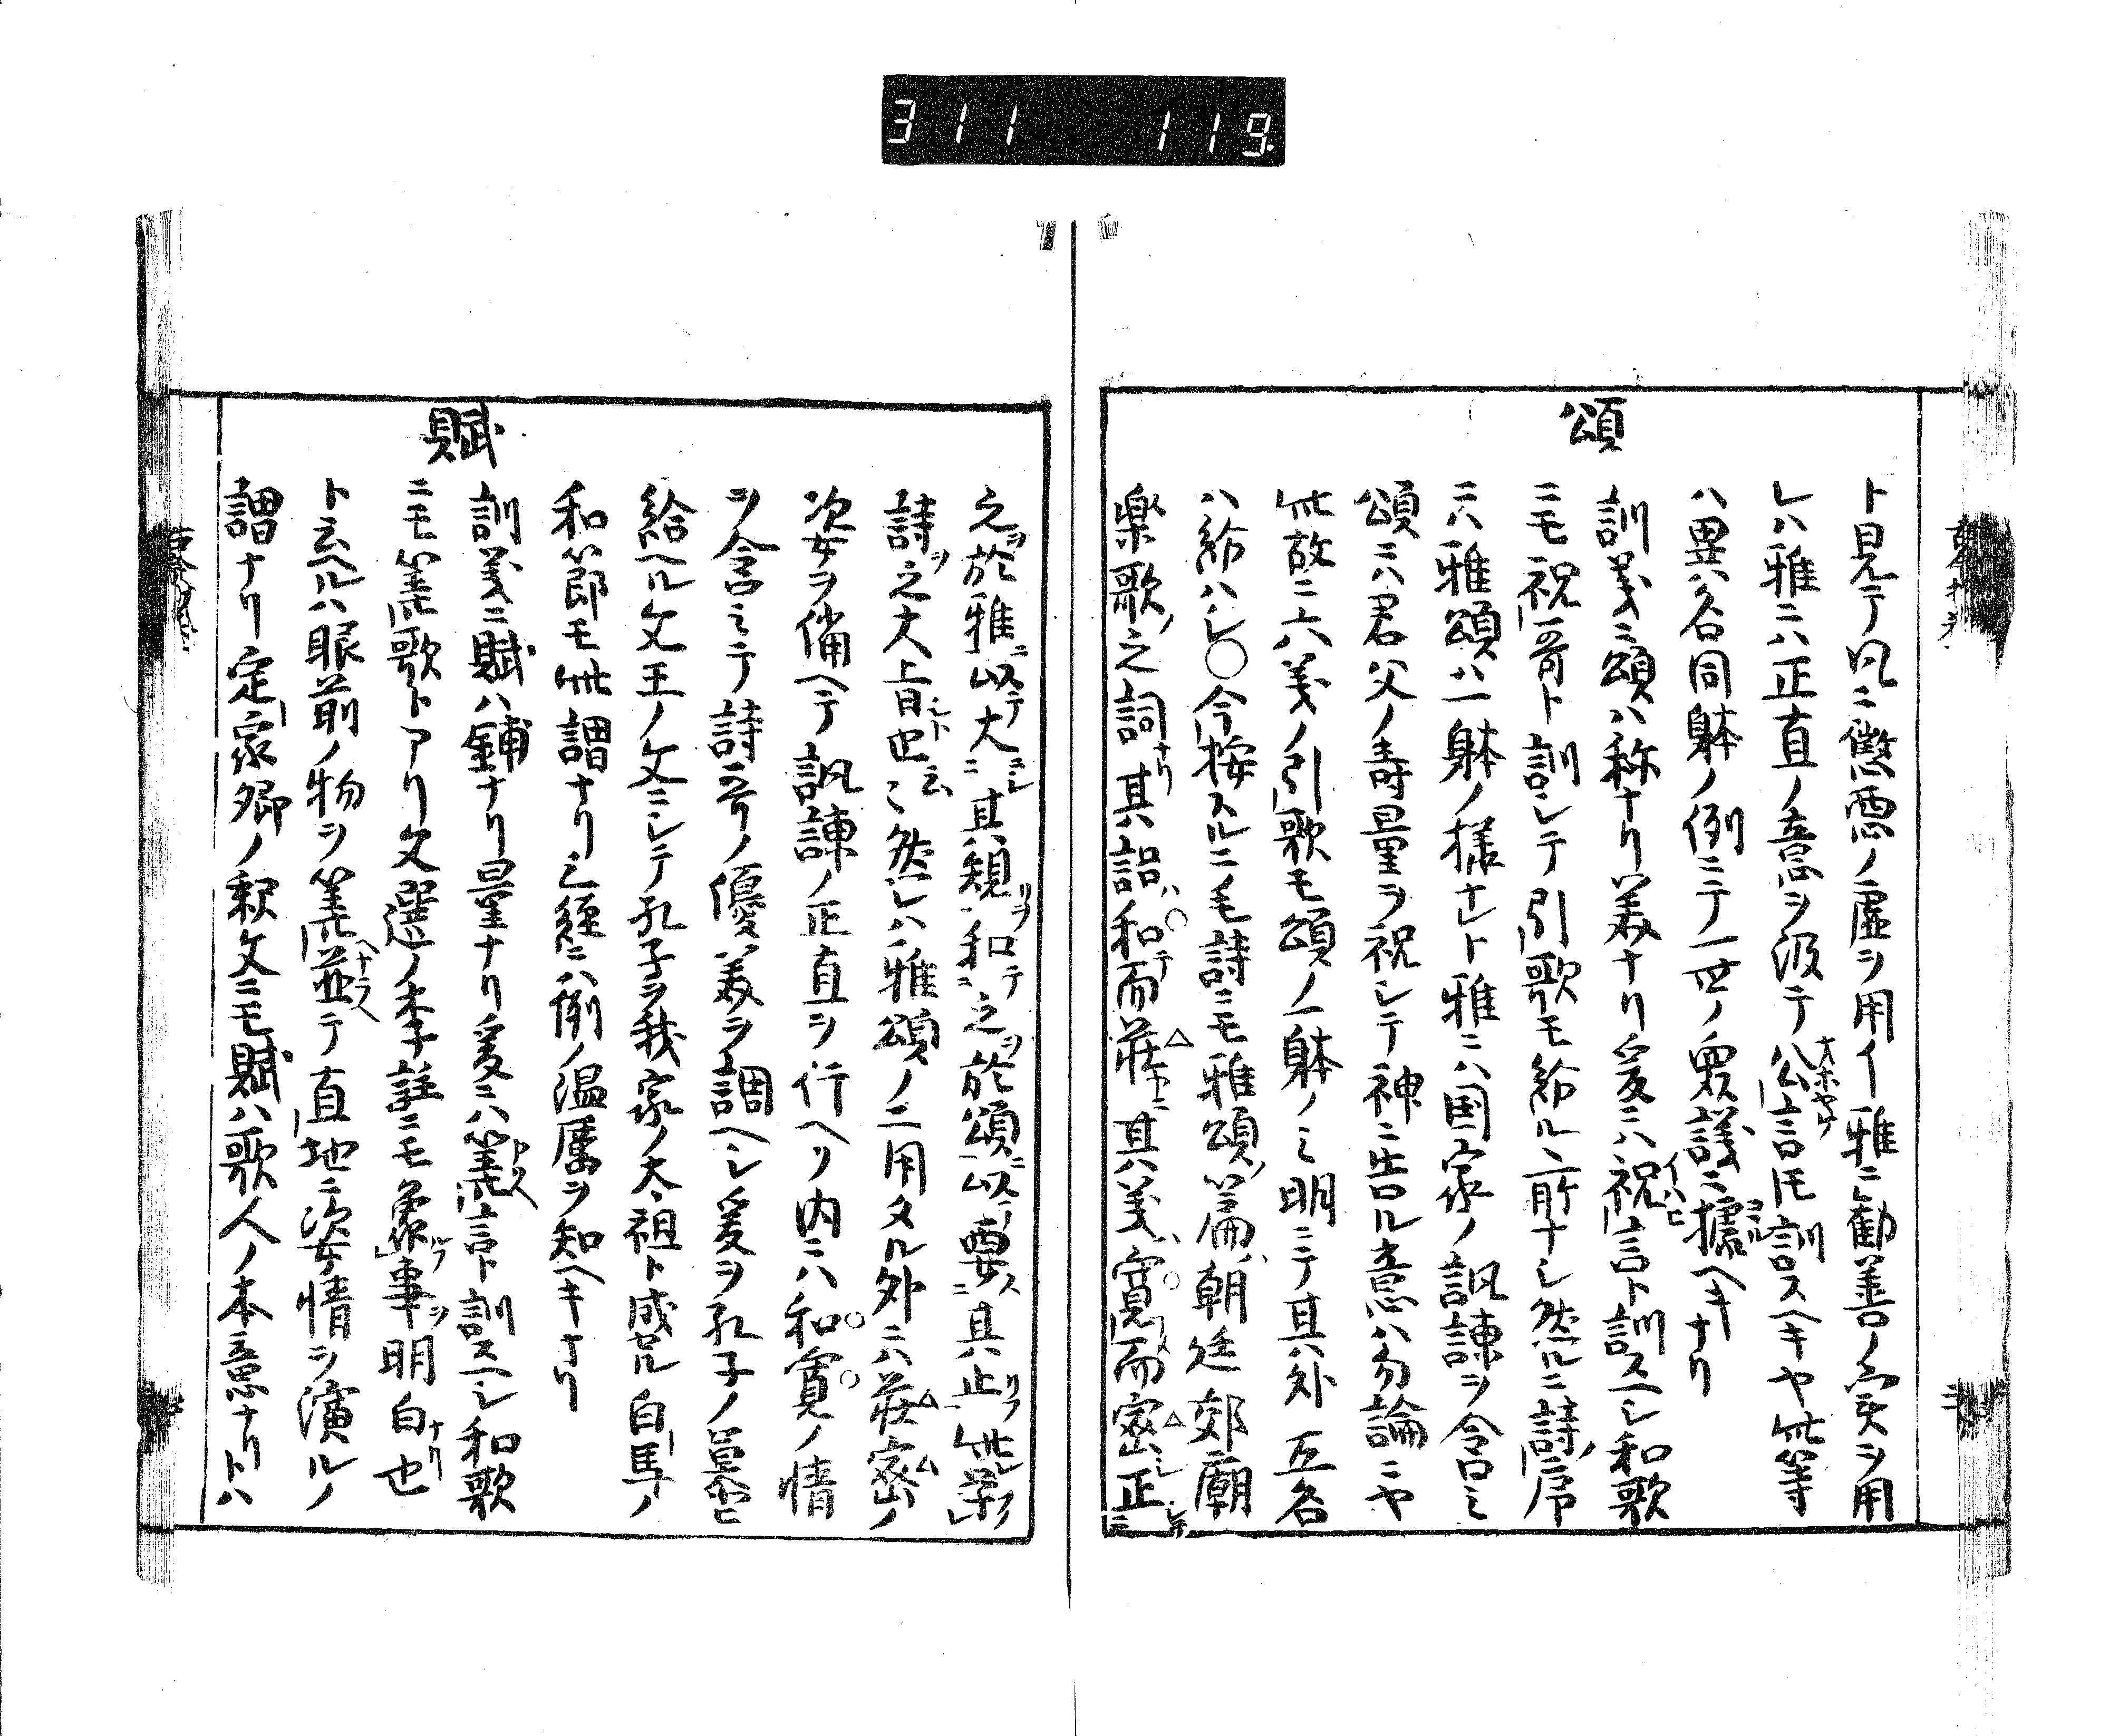 311 119
ト見テ風ニ懲悪ノ虚ヲ用イ雅ニ勧善ノ実ヲ用
レハ雅ニハ正直ノ意ヲ汲テ公言トモ訓スヘキヤ此等
ハ異名同躰ノ例ニテ一世ノ衆議ニ擄ヘキナリ
頌
訓義ニ頌ハ称ナリ美ナリ爰ニハ祝言ト訓スヘシ和歌
ニモ祝哥ト訓シテ引歌モ紛ル所ナシ然ルニ詩序
ニハ雅頌ハ一躰ノ様ナレト雅ニハ国家ノ諷諫ヲ含ミ
頌ニハ君父ノ寿量ヲ祝シテ神ニ告ル意ハ勿論ニヤ
此故ニ六義ノ引歌モ頌ノ一躰ノミ明ニテ其外互名
ハ紛ハシ○今按スルニ毛詩ニモ雅頌ノ篇ハ朝廷郊廟
楽歌ノ之詞ナリ其語ハ和テ而荘ニ其義ハ寛而密シ正
之ヲ於雅ニ以テ大ニシ其規リヲ和テ之ヲ於頌ニ以テ要ス其止リヲ此レ学ノ
詩ヲ之大旨也ト云々然レハ雅頌ノ二用タル外ニハ荘密ノ
姿ヲ備ヘテ諷諫ノ正直ヲ行ヘリ内ニハ和寛ノ情
ヲ含ミテ詩哥ノ優美ヲ調ヘシ爰ヲ孔子ノ曇ト
給ヘル文王ノ文ニシテ孔子ヲ我家ノ太祖ト成シル白馬ノ
和節モ此謂ナリ三経ニハ例ノ温厲ヲ知ヘキナリ
賦
訓義ニ賦ハ鋪ナリ量ナリ爰ニハ算言ト訓スヘシ和歌
ニモ算歌トアリ文選ノ李註ニモ象事ヲ明白ナリ也
ト云ヘルハ眼前ノ物ヲ算並テ直地ニ姿情ヲ演ルノ
謂ナリ定家卿ノ釈文ニモ賦ハ歌人ノ本意ナリトハ